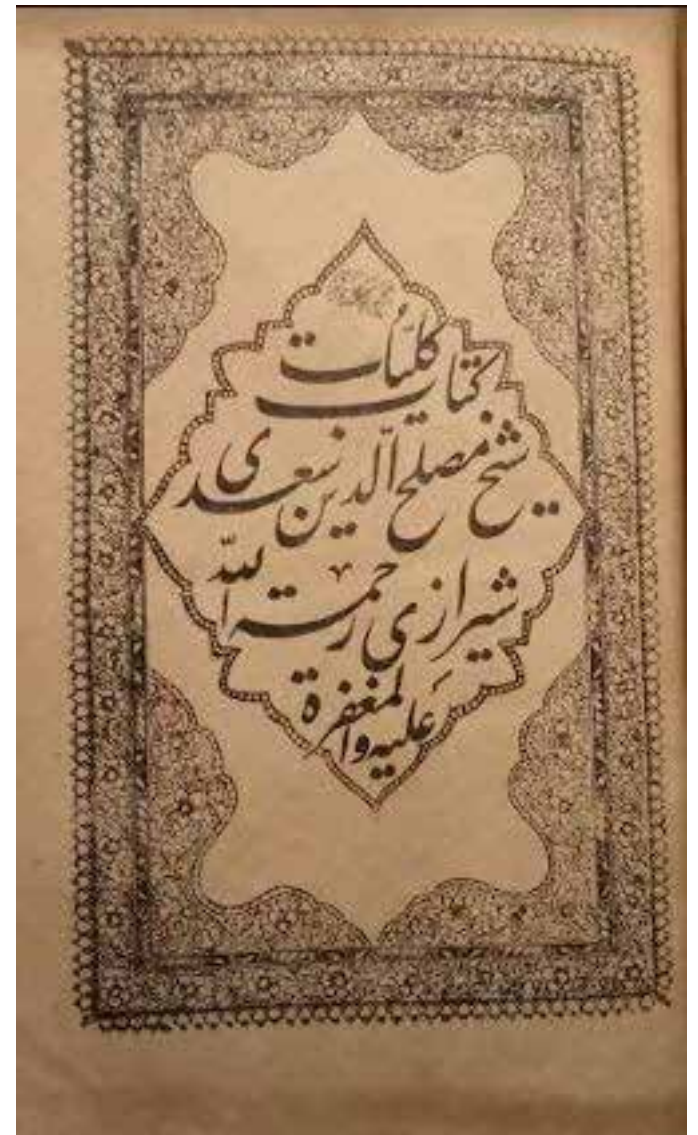 کتاب کلیّات
شیخ مصلح الّدین سعدی
شیرازی رحمة اللّه
عَلیه والمغفرة